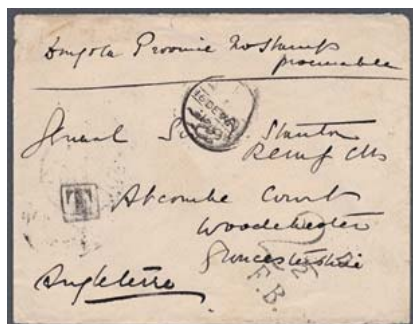 Dongola Province No Stamps
procurable
General Sir Stanton
Abcombe Court
Woodchester
Gloucestershire
Angleterre
T
F.B.